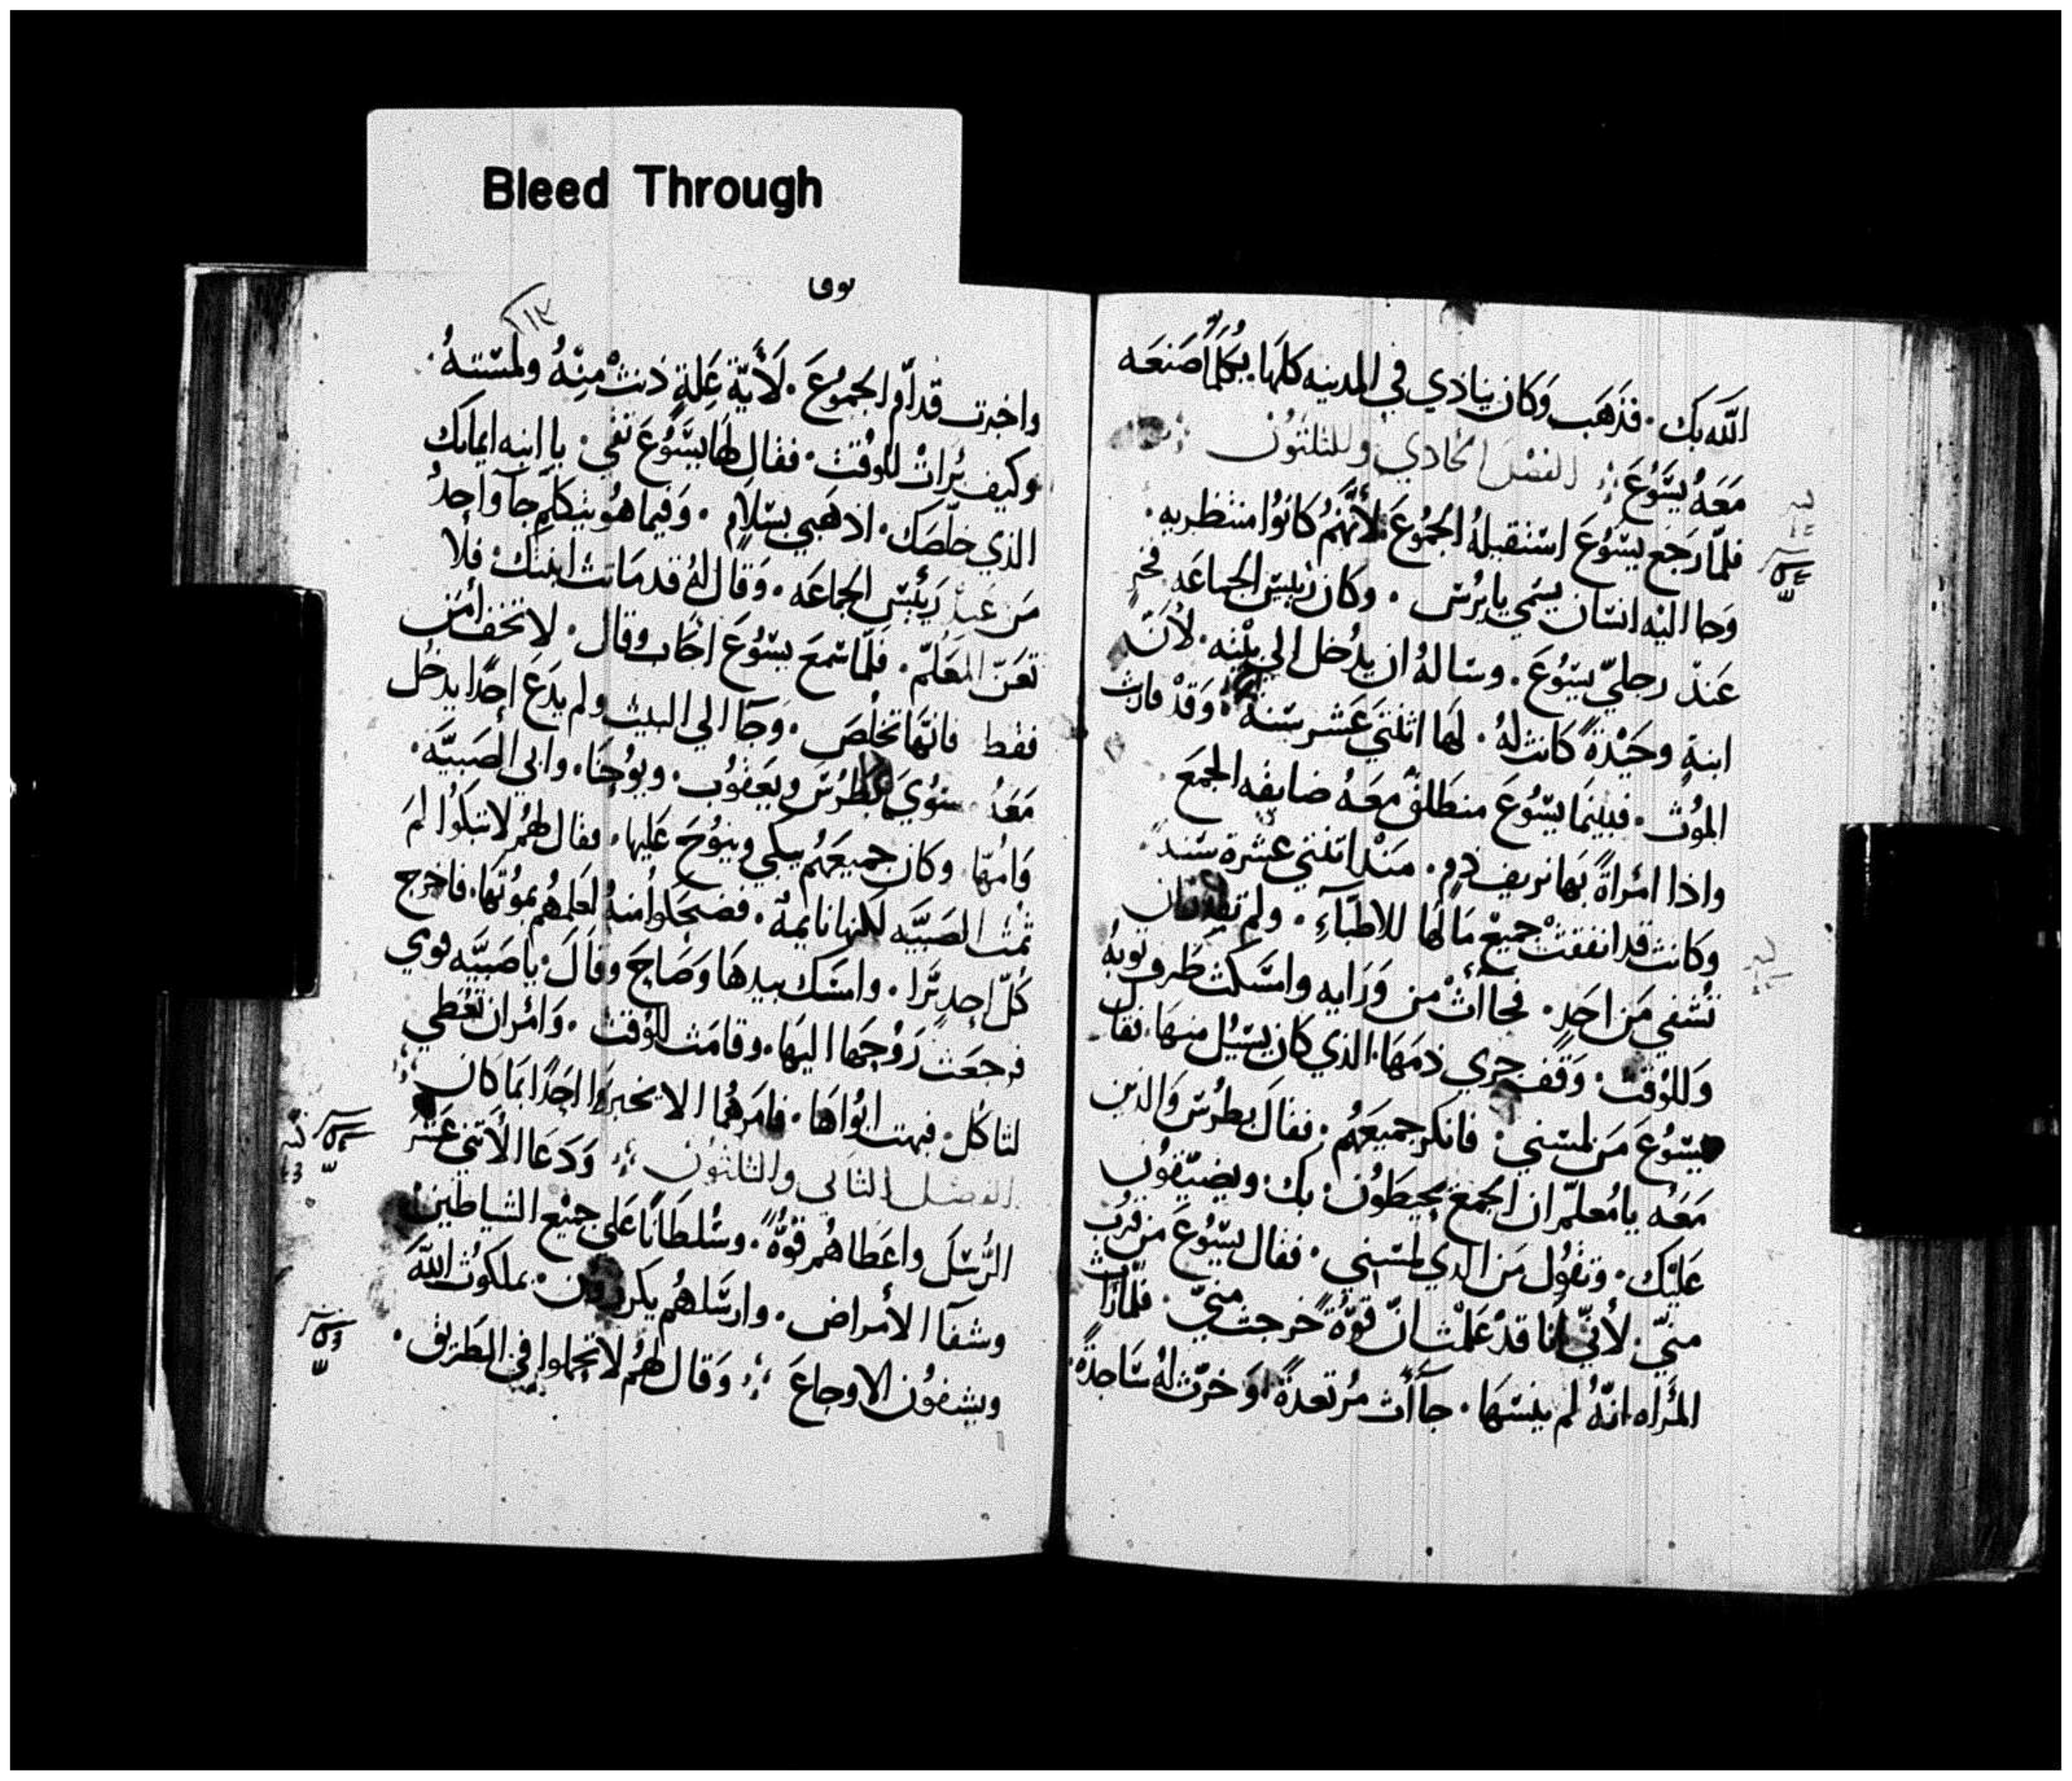 الله بك . فذهب وكان ينادي في المدينه كلها . بكلما صنعه
معه يسوع : الفصل الحادي والثلثون
فلما رجع يسوع استقبله الجموع لأنهم كانوا منتظريه .
وجا اليه انسان يسمي يايرس . وكان رئيس الجماعه فخر
عند رجلي يسوع . وساله ان يدخل الي بيته . لأن
ابنة وحيدة كانت له . لها اثنتي عشر سنة . وقد قاربت
الموت . فبينما يسوع منطلق معه ضايقه الجمع
واذا امراة بها نزيف دم . منذ اثنتي عشرة سنة .
وكانت قد انفقت جميع مالها للاطباء . ولم تقدر ان
تشفي من احد . فجاأت من ورايه وامسكت طرف ثوبه
وللوقت . وقف جري دمها . الذي كان يسيل منها . فقال
يسوع من لمسني . فانكر جميعهم . فقال بطرس والذين
معه يا معلم ان الجمع يحيطون بك . ويضيقون
عليك . وتقول من الذي لمسني . فقال يسوع من قرب
مني . لأني انا قد علمت ان قوة خرجت مني . فلما رات
المراه انه لم ينسها . جاأت مرتعدة . وخرت له ساجدة .
لوقا
١١٣
واخبرت قدام الجموع . لأية علة دنت منه ولمسته .
وكيف برات للوقت . فقال لها يسوع ثقي . يا ابنه ايمانك
الذي خلصك . اذهبي بسلام . وفيما هو يتكلم جا واحد
من عند رئيس الجماعه . وقال له قد ماتت ابنتك . فلا
تعن المعلم . فلما سمع يسوع اجاب وقال . لا تخف أمن
فقط فانها تخلص . وجا الي البيت ولم يدع احدا يدخل
معه سوي بطرس ويعقوب . ويوحنا . وابي الصبيه .
وامها . وكان جميعهم يبكي وينوح عليها . فقال لهم لا تبكوا لم
تمت الصبيه لكنها نايمة . فضحكوا منه لعلمهم بموتها . فاخرج
كل احد برا . وامسك بيدها وصاح وقال . يا صبيه قومي
فرجعت روحها اليها . وقامت للوقت . وامر ان تعطي
لتاكل . فبهت ابواها . فامرهما الا يخبرا احدا بما كان
الفصل الثاني والثلثون : ودعا الأثني عشر
الرسل واعطاهم قوة . وسلطانا علي جميع الشياطين
وشفا الأمراض . وارسلهم يكرزون . بملكوت الله
ويشفون الاوجاع : وقال لهم لا تحملوا في الطريق .
Bleed Through